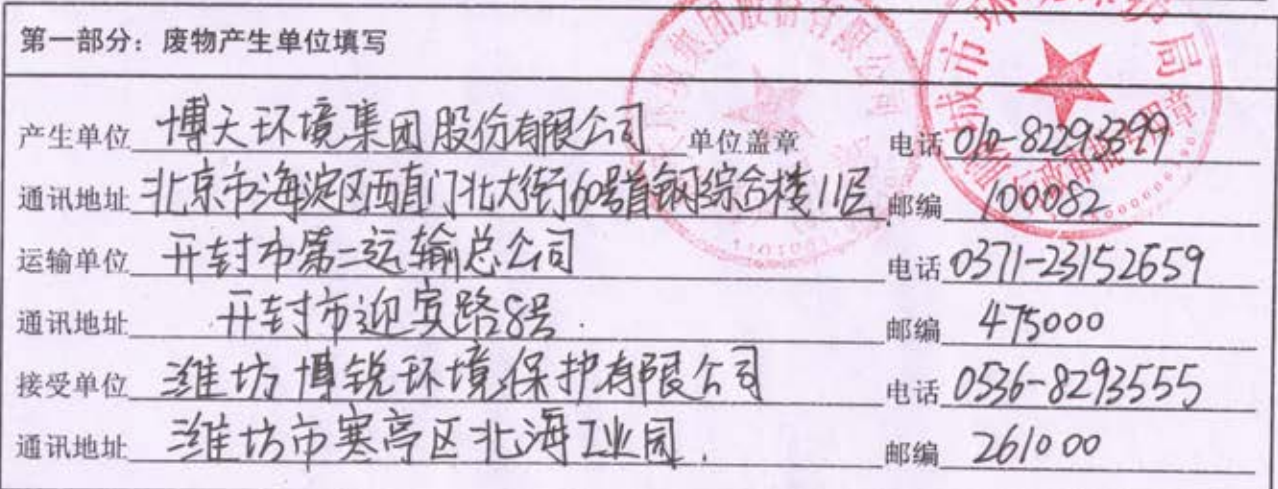 第一部分：废物产生单位填写
产生单位 博天环境集团股份有限公司 单位盖章 电话 010-82293399
通讯地址 北京市海淀区西直门北大街60号首钢综合楼11层 邮编 100082
运输单位 开封市第二运输总公司 电话 0371-23152659
通讯地址 开封市迎宾路8号. 邮编 475000
接受单位 潍坊博锐环境保护有限公司 电话 0536-8293555
通讯地址 潍坊市寒亭区北海工业园. 邮编 261000
集团股份有限公司
城市环 局